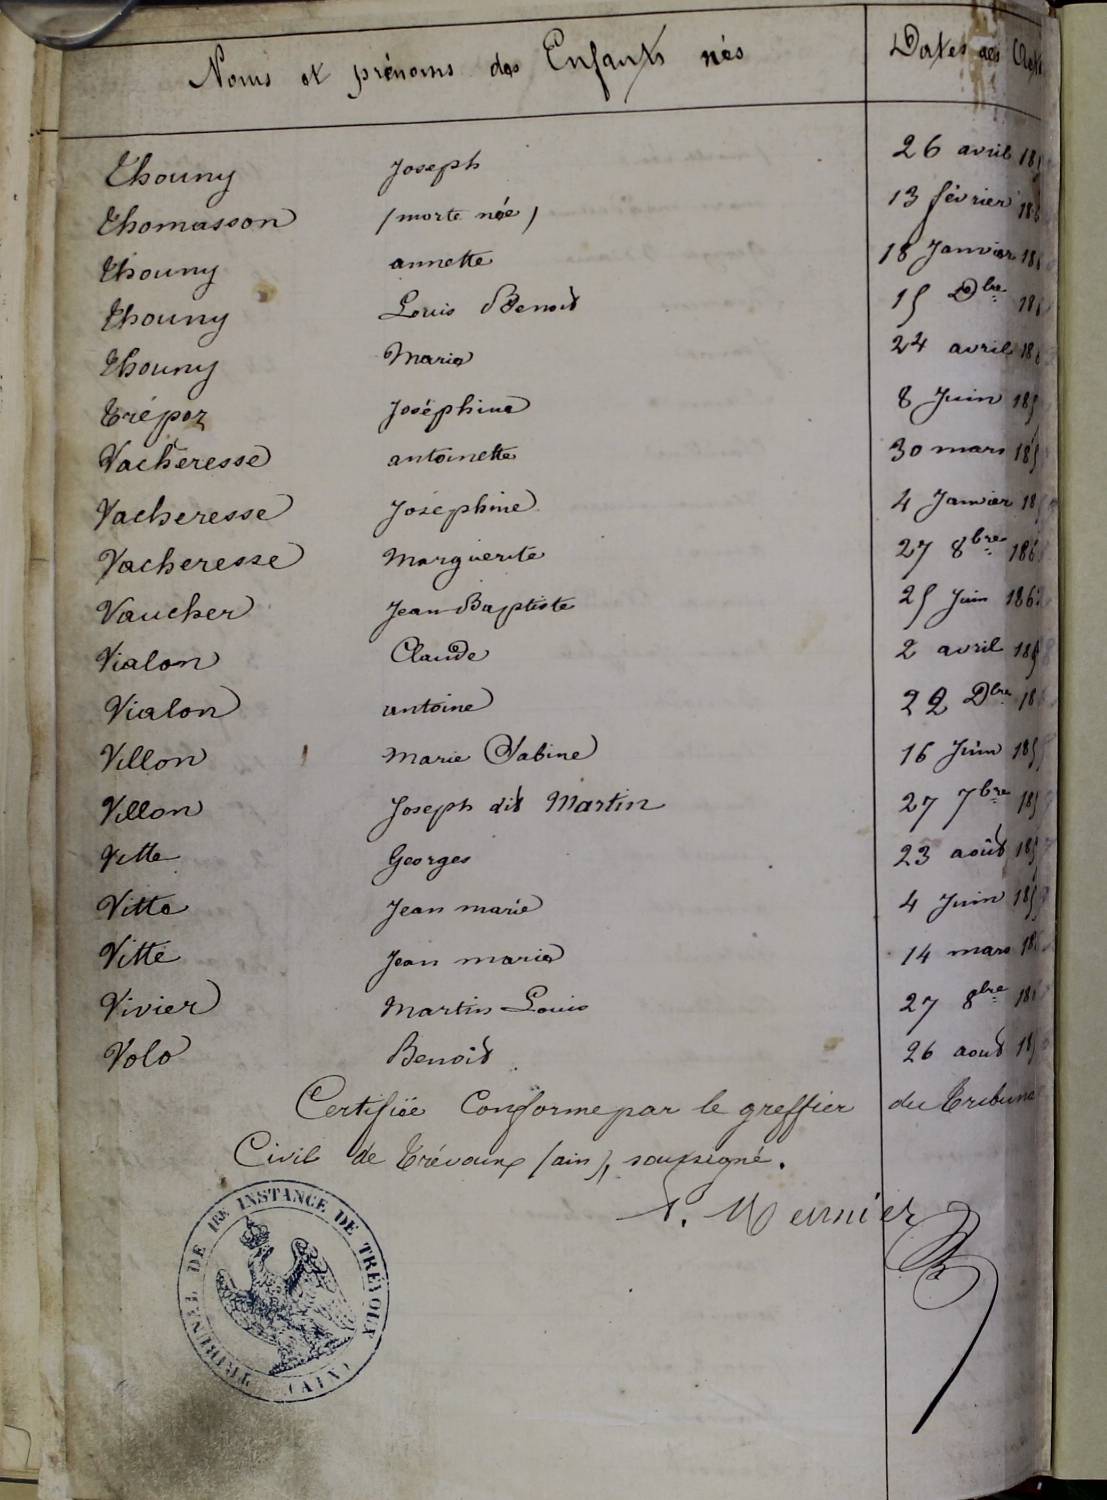 Noms et prénoms des Enfants nés Dates des
Thouny Joseph 26 avril
Thomasson (morte née) 13 février
Thouny annette 18 Janvier
Thouny Louis Benoit 15 Dbre
Thouny Marie 24 avril
Trépoz Joséphine 8 Juin
Vacheresse antoinette 30 mars
Vacheresse Joséphine 4 Janvier
Vacheresse Marguerite 27 8bre
Vaucher Jean Baptiste 25 Juin
Vialon Claude 2 avril
Vialon antoine 22 Dbre
Villon Marie Sabine 16 Juin
Villon Joseph dit Martin 27 7bre
Vitte Georges 23 août
Vitte Jean marie 4 Juin
Vitte Jean marie 14 mars
Vivier Martin Louis 27 8bre
Volo Benoit 26 aout
Certifiée Conforme par le greffier du Tribunal
Civil de Trévoux (ain), soussigné.
Meunier
TRIBUNAL DE 1RE INSTANCE DE TREVOUX (AIN)